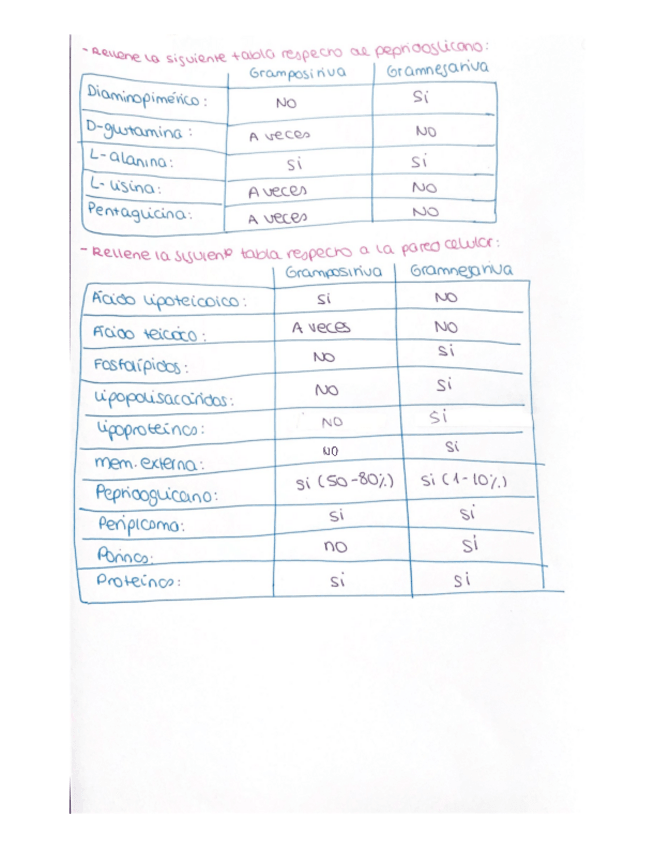 - Rellene la siguiente tabla respecto al peptidoglicano:
Grampositiva Gramnegativa
Diaminopimérico: NO Si
D-glutamina: A veces NO
L-alanina: Si Si
L-lisina: A veces NO
Pentaglicina: A veces NO
- Rellene la siguiente tabla respecto a la pared celular:
Grampositiva Gramnegativa
Ácido lipoteicoico: Si NO
Ácido teicoico: A veces NO
Fosfolípidos: NO Si
Lipopolisacáridos: NO Si
Lipoproteínas: NO Si
mem. externa: NO Si
Peptidoglicano: Si (50-80%) Si (1-10%)
Periplasma: Si Si
Porinas: no Si
Proteínas: Si Si